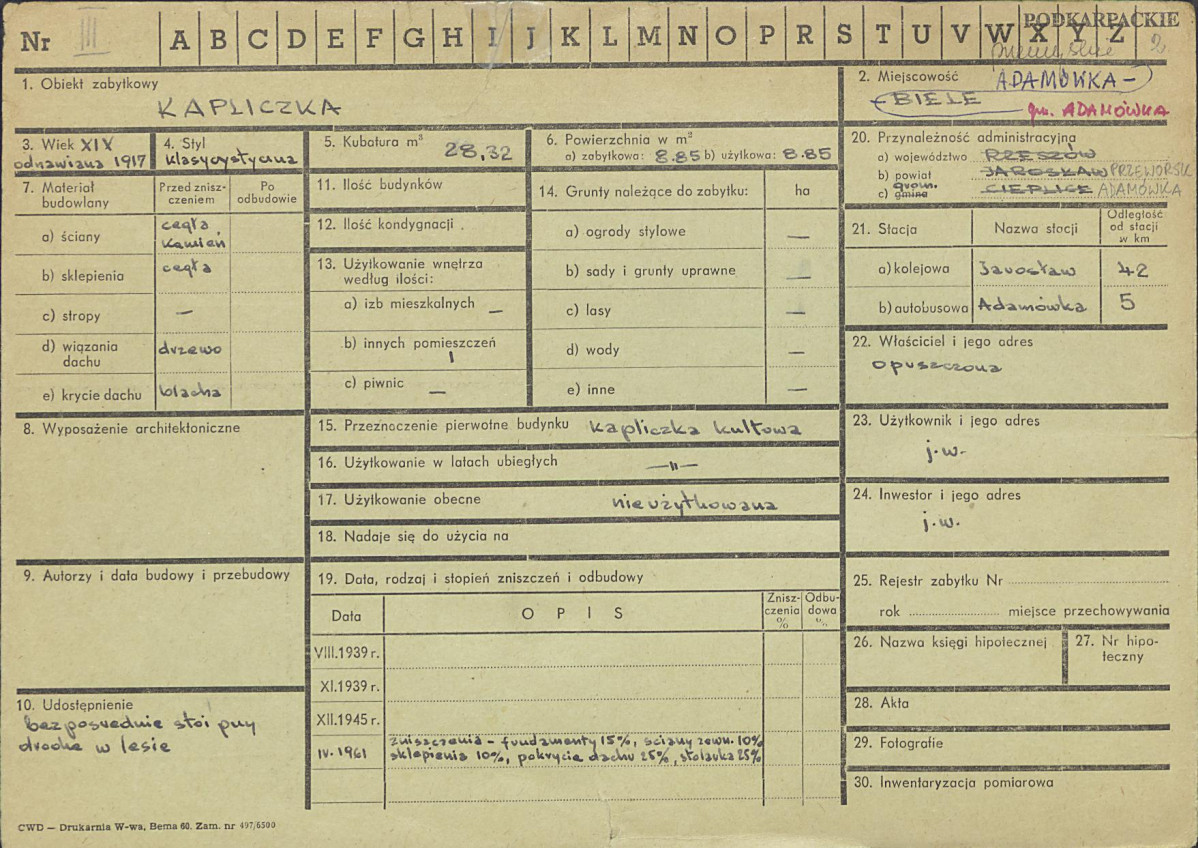 Nr III A B C D E F G H I J K L M N O P R S T U V W X Y Z
PODKARPACKIE
2.
1. Obiekt zabytkowy
KAPLICZKA
2. Miejscowość ADAMÓWKA –
BIELE
gm. ADAMÓWKA
3. Wiek XIX
odnawiana 1917
4. Styl
klasycystyczna
5. Kubatura m³ 28,32
6. Powierzchnia w m²
a) zabytkowa: 8.85 b) użytkowa: 8.85
20. Przynależność administracyjna
a) województwo RZESZÓW
b) powiat JAROSŁAW PRZEWORSK
grom.
c) gmina CIEPLICE ADAMÓWKA
7. Materiał budowlany
Przed zniszczeniem
Po odbudowie
a) ściany cegła, kamień
b) sklepienia cegła
c) stropy —
d) wiązania dachu drzewo
e) krycie dachu blacha
11. Ilość budynków
12. Ilość kondygnacji
13. Użytkowanie wnętrza
według ilości:
a) izb mieszkalnych —
b) innych pomieszczeń
1
c) piwnic —
14. Grunty należące do zabytku: ha
a) ogrody stylowe —
b) sady i grunty uprawne —
c) lasy —
d) wody —
e) inne —
21. Stacja Nazwa stacji Odległość od stacji w km
a) kolejowa Jarosław 42
b) autobusowa Adamówka 5
22. Właściciel i jego adres
opuszczona
8. Wyposażenie architektoniczne
15. Przeznaczenie pierwotne budynku kapliczka kultowa
16. Użytkowanie w latach ubiegłych —„—
17. Użytkowanie obecne nieużytkowana
18. Nadaje się do użycia na
23. Użytkownik i jego adres
j.w.
24. Inwestor i jego adres
j.w.
9. Autorzy i data budowy i przebudowy
19. Data, rodzaj i stopień zniszczeń i odbudowy
Data OPIS Zniszczenia % Odbudowa %
VIII.1939 r.
XI.1939 r.
XII.1945 r.
IV.1961 Zniszczenia – fundamenty 15%, ściany zewn. 10%
sklepienia 10%, pokrycie dachu 25%, stolarka 25%
25. Rejestr zabytku Nr
rok miejsce przechowywania
26. Nazwa księgi hipotecznej
27. Nr hipoteczny
28. Akta
29. Fotografie
30. Inwentaryzacja pomiarowa
10. Udostępnienie
bezpośrednie stoi przy
drodze w lesie
CWD — Drukarnia W-wa, Bema 60. Zam. nr 497/6500